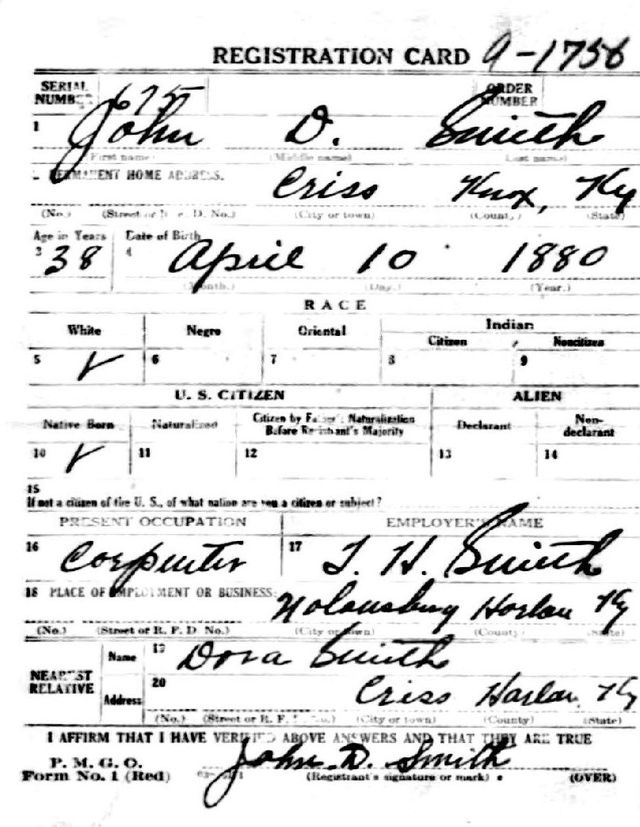 REGISTRATION CARD 9-1756
SERIAL NUMBER 675 ORDER NUMBER
1 John D. Smith
(First name) (Middle name) (Last name)
PERMANENT HOME ADDRESS.
Criss Knox, Ky
(No.) (Street or R. F. D. No.) (City or town) (County) (State)
Age in Years Date of Birth
3 38 4 April 10 1880
(Month.) (Day.) (Year.)
RACE
White Negro Oriental Indian
Citizen Noncitizen
5 ✓ 6 7 8 9
U. S. CITIZEN ALIEN
Native Born Naturalized Citizen by Father's Naturalization Before Registrant's Majority Declarant Non-declarant
10 ✓ 11 12 13 14
15
If not a citizen of the U. S., of what nation are you a citizen or subject?
PRESENT OCCUPATION EMPLOYER'S NAME
16 Corpenter 17 T. H. Smith
18 PLACE OF EMPLOYMENT OR BUSINESS:
Nolansburg Harlan Ky
(No.) (Street or R. F. D. No.) (City or town) (County) (State)
NEAREST RELATIVE Name 19 Dora Smith
Address 20 Criss Harlan Ky
(No.) (Street or R. F. D. No.) (City or town) (County) (State)
I AFFIRM THAT I HAVE VERIFIED ABOVE ANSWERS AND THAT THEY ARE TRUE
P. M. G. O.
Form No. 1 (Red) John D. Smith
(Registrant's signature or mark) (OVER)